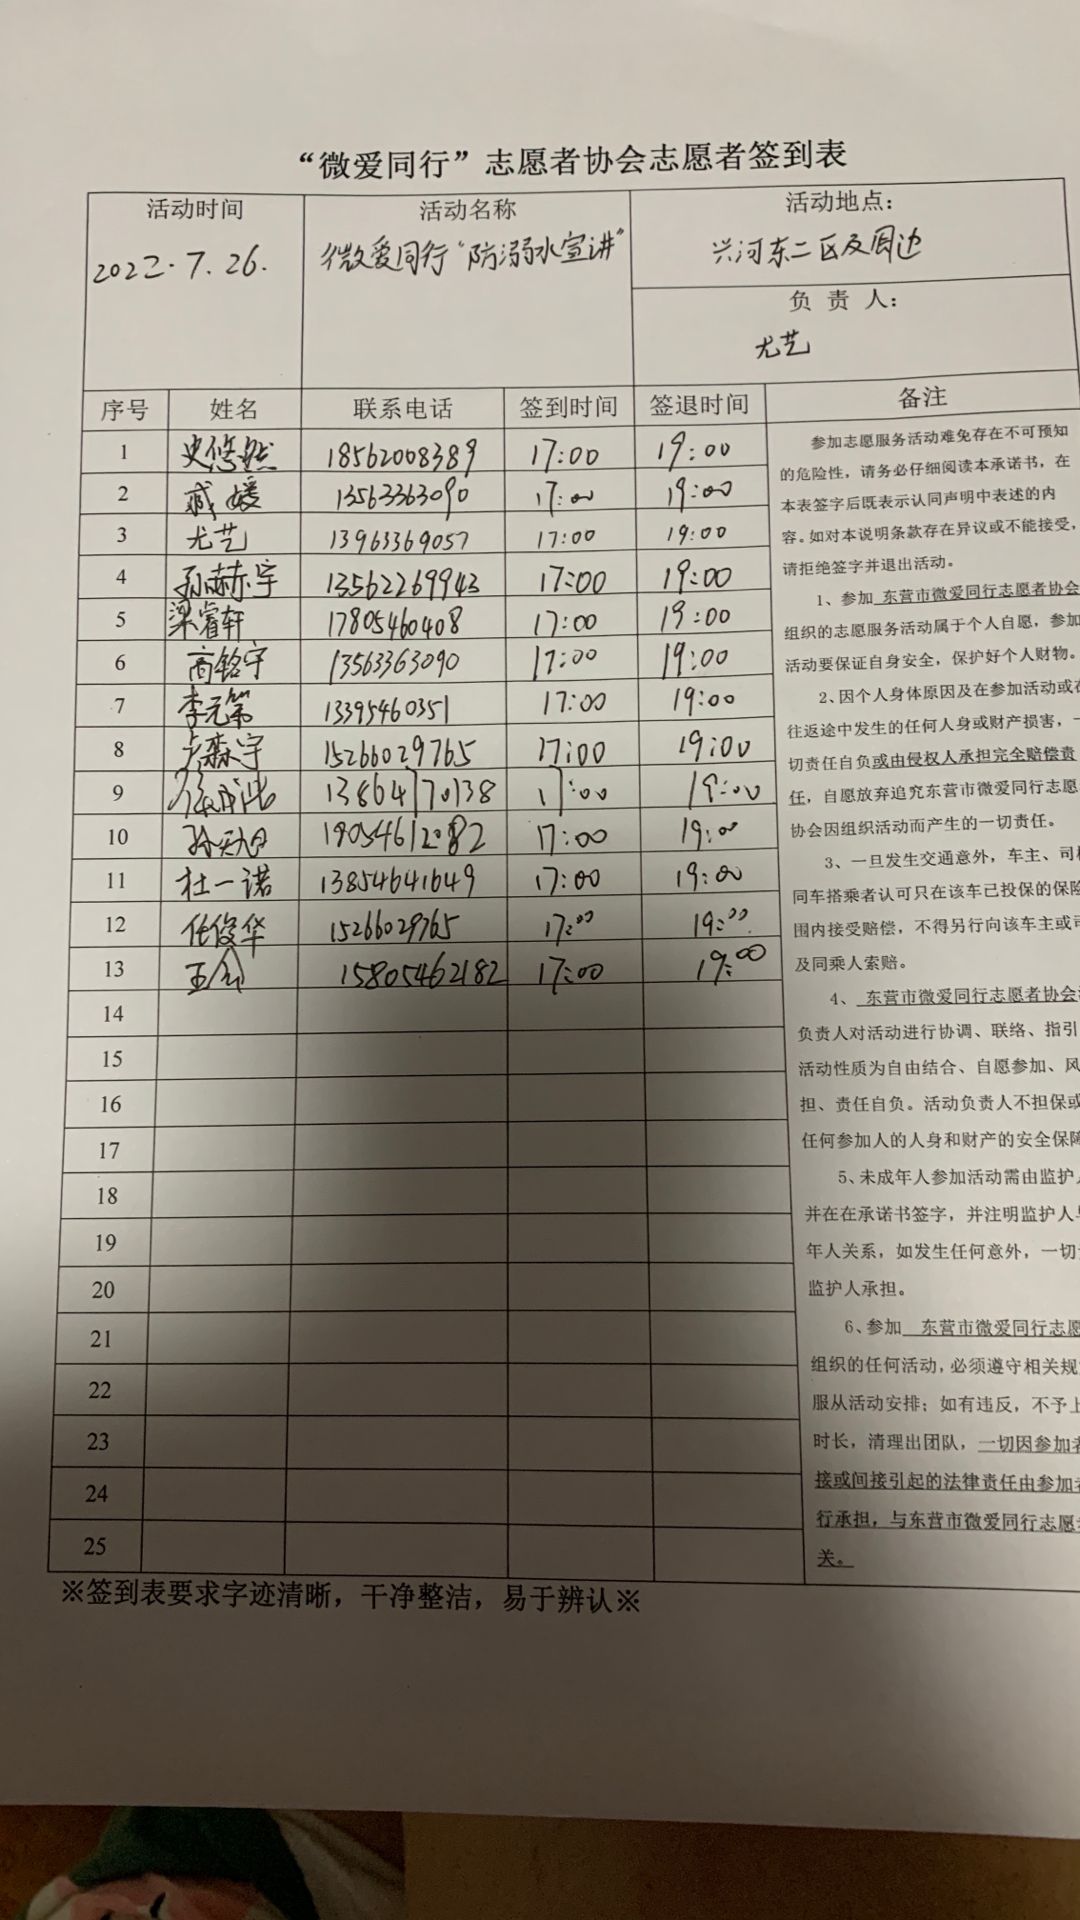 “微爱同行”志愿者协会志愿者签到表
活动时间 活动名称 活动地点：
2022.7.26. 微爱同行“防溺水宣讲” 兴河东二区及周边
负 责 人：
尤艺
序号 姓名 联系电话 签到时间 签退时间 备注
1 史悠然 18562008389 17:00 19:00
2 臧媛 13563363090 17:00 19:00
3 尤艺 13963369057 17:00 19:00
4 孙赫宇 13562269943 17:00 19:00
5 梁睿轩 17805460408 17:00 19:00
6 商铭宇 13563363090 17:00 19:00
7 李元第 13395460351 17:00 19:00
8 森宇 15266029765 17:00 19:00
9 13864170138 17:00 19:00
10 19054612082 17:00 19:00
11 杜一诺 13854641649 17:00 19:00
12 任俊华 15266029765 17:00 19:00
13 15805462182 17:00 19:00
14
15
16
17
18
19
20
21
22
23
24
25
参加志愿服务活动难免存在不可预知
的危险性，请务必仔细阅读本承诺书，在
本表签字后既表示认同声明中表述的内
容。如对本说明条款存在异议或不能接受，
请拒绝签字并退出活动。
1、参加 东营市微爱同行志愿者协会
组织的志愿服务活动属于个人自愿，参加
活动要保证自身安全，保护好个人财物。
2、因个人身体原因及在参加活动或在
往返途中发生的任何人身或财产损害，一
切责任自负或由侵权人承担完全赔偿责
任，自愿放弃追究东营市微爱同行志愿
协会因组织活动而产生的一切责任。
3、一旦发生交通意外，车主、司机
同车搭乘者认可只在该车已投保的保险
围内接受赔偿，不得另行向该车主或司
及同乘人索赔。
4、 东营市微爱同行志愿者协会
负责人对活动进行协调、联络、指引
活动性质为自由结合、自愿参加、风
担、责任自负。活动负责人不担保或
任何参加人的人身和财产的安全保障
5、未成年人参加活动需由监护人
并在在承诺书签字，并注明监护人与
年人关系，如发生任何意外，一切
监护人承担。
6、参加 东营市微爱同行志愿
组织的任何活动，必须遵守相关规
服从活动安排；如有违反，不予上
时长，清理出团队，一切因参加者
接或间接引起的法律责任由参加者
行承担，与东营市微爱同行志愿
关。
※签到表要求字迹清晰，干净整洁，易于辨认※